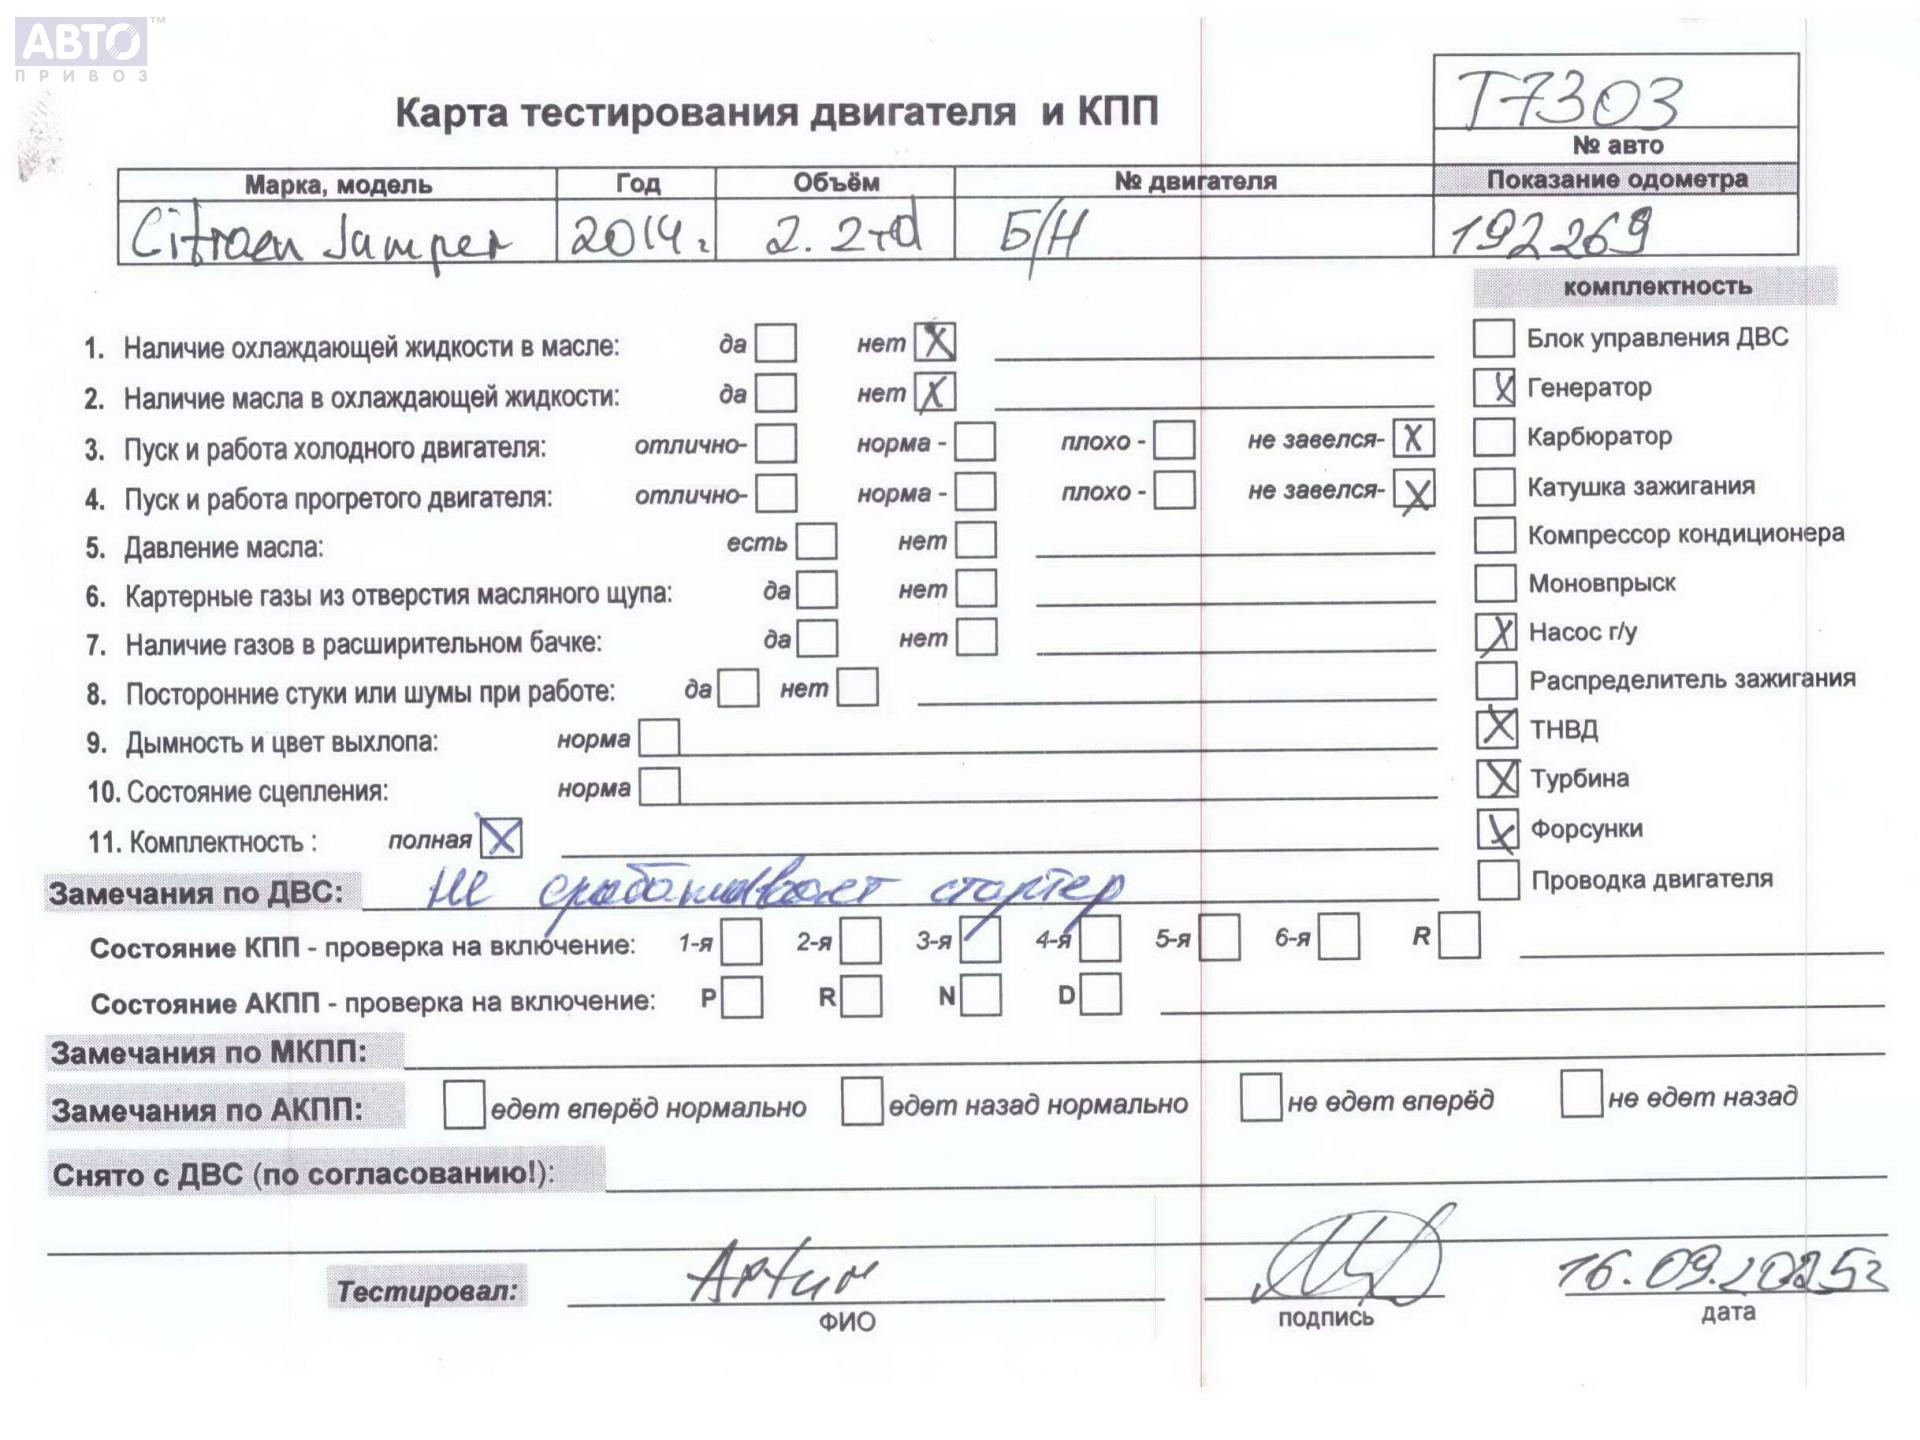 АВТО ™
ПРИВОЗ
Т7303
Карта тестирования двигателя и КПП
№ авто
Марка, модель Год Объём № двигателя Показание одометра
Citroen Jumper 2014г. 2.2td Б/Н 192269
комплектность
1. Наличие охлаждающей жидкости в масле: да нет X Блок управления ДВС
2. Наличие масла в охлаждающей жидкости: да нет X X Генератор
3. Пуск и работа холодного двигателя: отлично- норма - плохо - не завелся- X Карбюратор
4. Пуск и работа прогретого двигателя: отлично- норма - плохо - не завелся- X Катушка зажигания
5. Давление масла: есть нет Компрессор кондиционера
6. Картерные газы из отверстия масляного щупа: да нет Моновпрыск
7. Наличие газов в расширительном бачке: да нет X Насос г/у
8. Посторонние стуки или шумы при работе: да нет Распределитель зажигания
9. Дымность и цвет выхлопа: норма X ТНВД
10. Состояние сцепления: норма X Турбина
11. Комплектность : полная X X Форсунки
Замечания по ДВС: не срабатывает стартер Проводка двигателя
Состояние КПП - проверка на включение: 1-я 2-я 3-я 4-я 5-я 6-я R
Состояние АКПП - проверка на включение: P R N D
Замечания по МКПП:
Замечания по АКПП: едет вперёд нормально едет назад нормально не едет вперёд не едет назад
Снято с ДВС (по согласованию!):
Тестировал: Артим 16.09.2025г
ФИО подпись дата